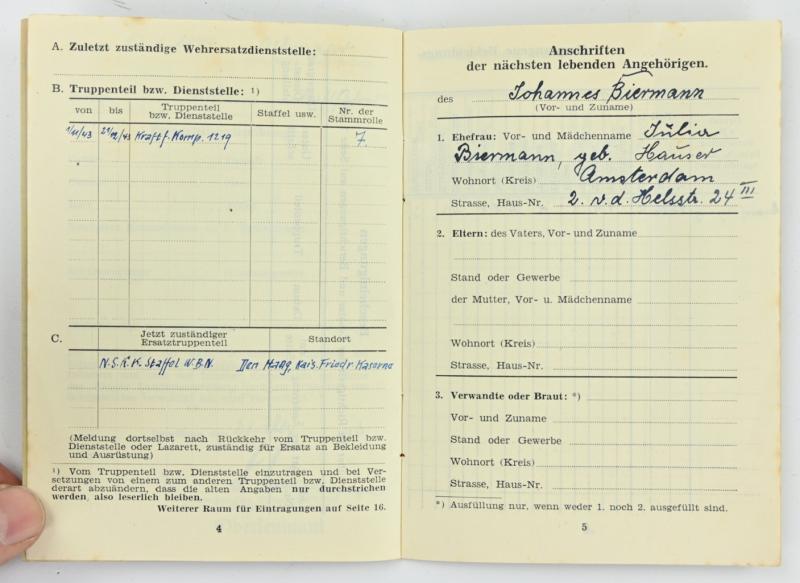 A. Zuletzt zuständige Wehrersatzdienststelle:
B. Truppenteil bzw. Dienststelle: ¹)
von bis Truppenteil bzw. Dienststelle Staffel usw. Nr. der Stammrolle
1/11/43 21/12/43 Kraftf. Komp. 1219 7
C. Jetzt zuständiger Ersatztruppenteil Standort
N.S.K.K. Staffel W.B.N. Den Haag, Kais. Friedr. Kaserne
(Meldung dortselbst nach Rückkehr vom Truppenteil bzw.
Dienststelle oder Lazarett, zuständig für Ersatz an Bekleidung
und Ausrüstung)
¹) Vom Truppenteil bzw. Dienststelle einzutragen und bei Ver-
setzungen von einem zum anderen Truppenteil bzw. Dienststelle
derart abzuändern, dass die alten Angaben nur durchstrichen
werden, also leserlich bleiben.
Weiterer Raum für Eintragungen auf Seite 16.
4
Anschriften
der nächsten lebenden Angehörigen.
des Johannes Biermann
(Vor- und Zuname)
1. Ehefrau: Vor- und Mädchenname Julia
Biermann, geb. Hauser
Wohnort (Kreis) Amsterdam
Strasse, Haus-Nr. 2. v.d. Helsstr. 24 III
2. Eltern: des Vaters, Vor- und Zuname
Stand oder Gewerbe
der Mutter, Vor- u. Mädchenname
Wohnort (Kreis)
Strasse, Haus-Nr.
3. Verwandte oder Braut: *)
Vor- und Zuname
Stand oder Gewerbe
Wohnort (Kreis)
Strasse, Haus-Nr.
*) Ausfüllung nur, wenn weder 1. noch 2. ausgefüllt sind.
5